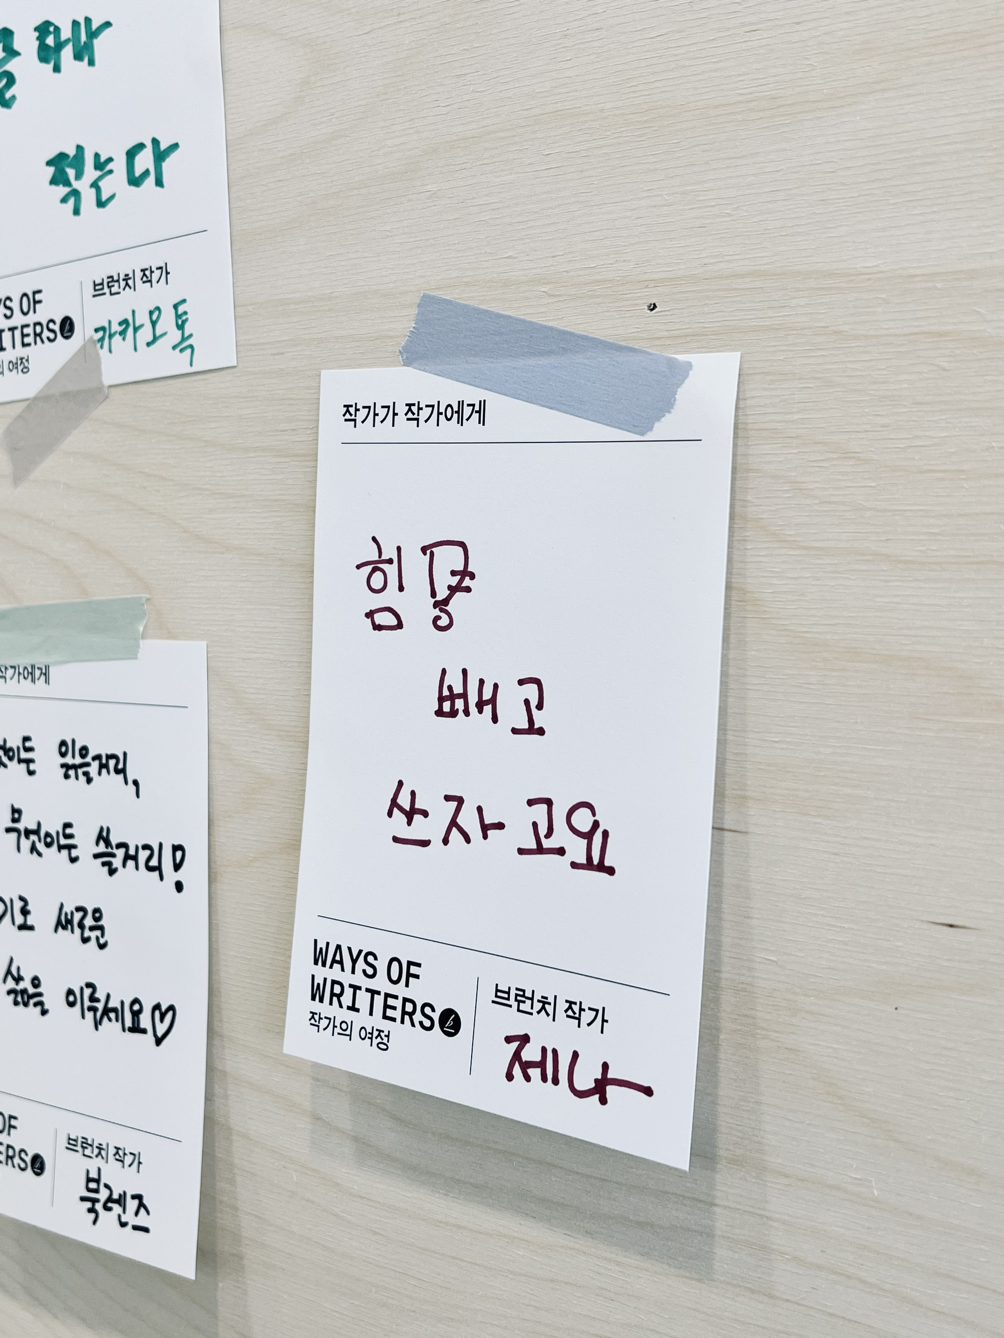 적는다
브런치 작가
카카오톡
의 여정
작가가 작가에게
힘
빼고
쓰자고요
WAYS OF
WRITERS
작가의 여정
브런치 작가
제나
작가에게
읽을거리,
무엇이든 쓸거리!
새로운
삶을 이루세요♡
OF
브런치 작가
북렌즈